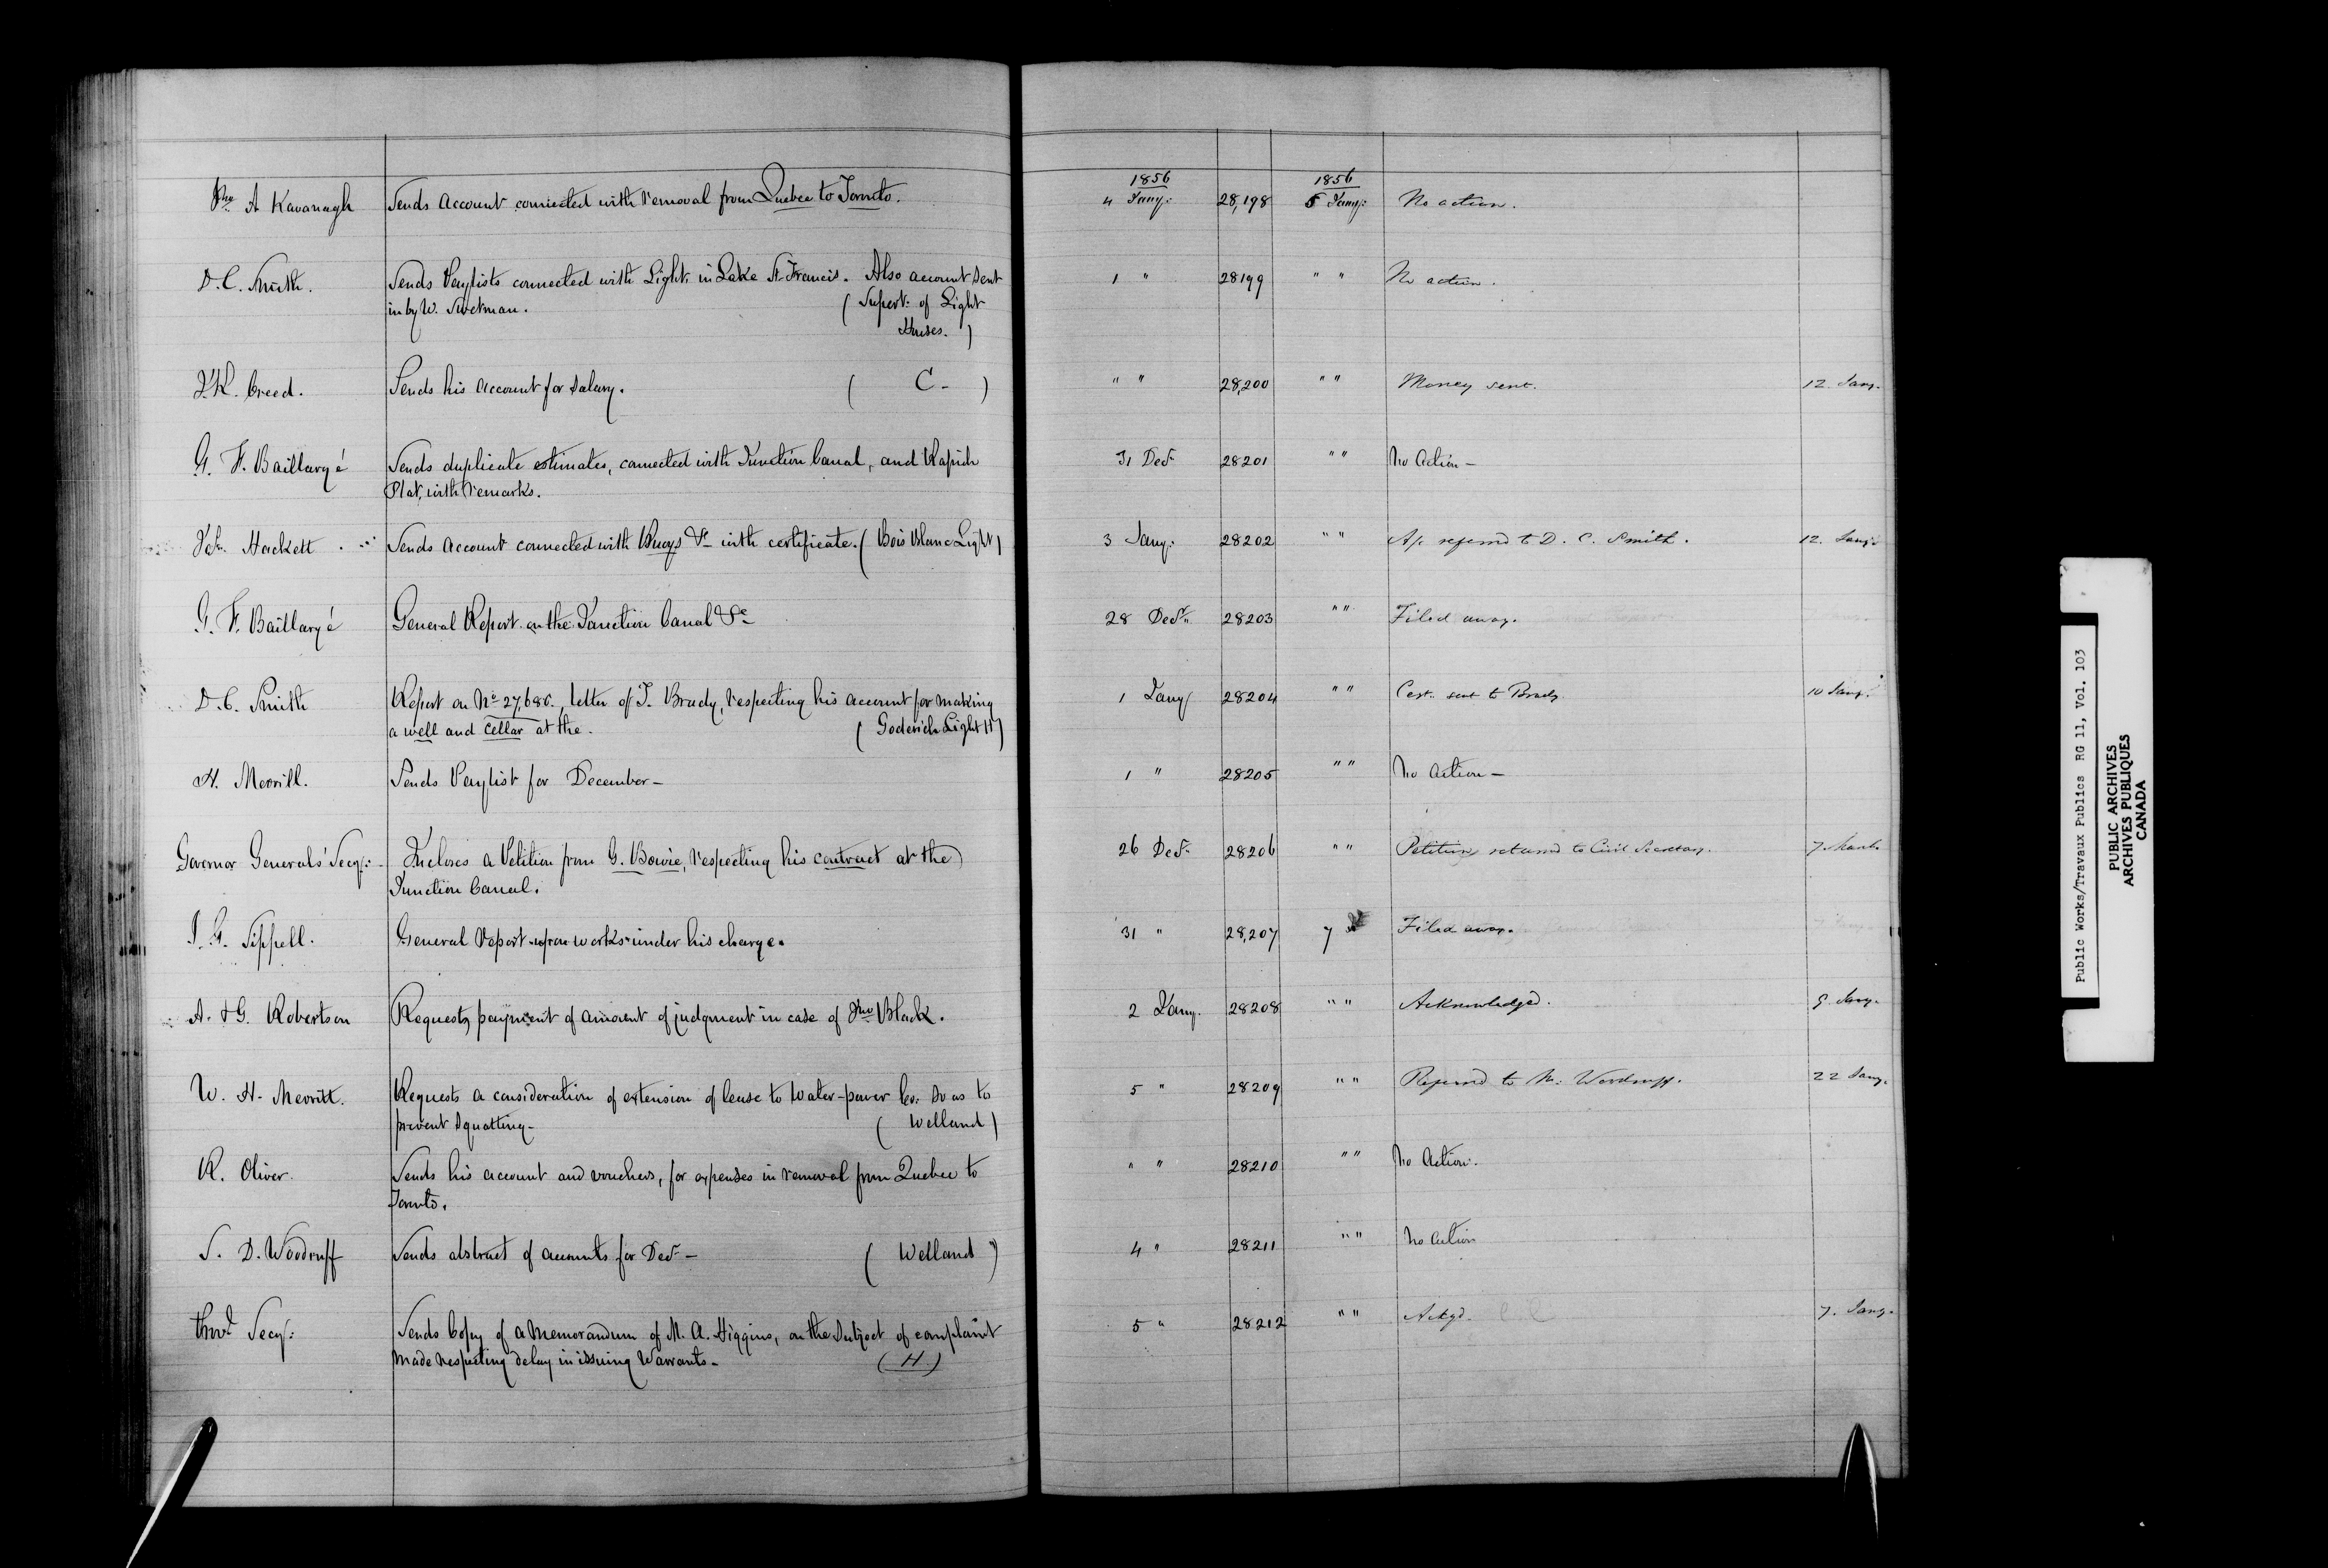 1856 1856
Jno A Kavanagh Sends account connected with removal from Quebec to Toronto. 4 Jany: 28,198 5 Jany: No action.
D. C. Smith. Sends Paylists connected with Lights in Lake St. Francis. Also account sent 1 " 28199 " " No action.
in by W. Swetman. ( Supert: of Light
Houses. )
J. R. Creed. Sends his account for salary. ( C - ) " " 28,200 " " Money sent. 12 Jany.
G. F. Baillargé Sends duplicate estimates, connected with Junction Canal, and Rapide 31 Decr 28201 " " No Action —
Plat, with remarks.
Hackett Sends account connected with Buoys &c with certificate. ( Bois Blanc Light ) 3 Jany: 28202 " " A/c referred to D. C. Smith. 12. Jany:
G. F. Baillargé General Report on the Junction Canal &c 28 Decr. 28203 " " Filed away.
D. C. Smith Report on No 27,685., letter of J. Brady, respecting his account for making 1 Jany 28204 " " Cert. sent to Brady. 10 Jany:
a well and cellar at the. ( Goderich Light H )
H. Merrill. Sends Paylist for December — 1 " 28205 " " No Action —
Governor Generals' Secy: Incloses a Petition from G. Bowie, respecting his contract at the 26 Decr 28206 " " Petition returned to Civil Secretary. 7 March
Junction Canal.
J. G. Sippell. General Report upon works under his charge. 31 " 28,207 7 Filed away.
A. & G. Robertson Requests payment of amount of judgment in case of Jno Black. 2 Jany. 28208 " " Acknowledged. 9 Jany.
W. H. Merritt. Requests a consideration of extension of lease to Water-power Co: so as to 5 " 28209 " " Referred to Mr: Woodruff. 22 Jany.
prevent squatting — ( Welland )
R. Oliver. Sends his account and vouchers, for expenses in removal from Quebec to " " 28210 " " No Action.
Toronto.
S. D. Woodruff Sends abstract of accounts for Decr — ( Welland ) 4 " 28211 " " No action
Provl Secy: Sends Copy of a Memorandum of M. A. Higgins, on the subject of complaint 5 " 28212 " " Ackgd. 7. Jany.
made respecting delay in issuing Warrants — ( H )
Public Works/Travaux Publics RG 11, Vol. 103
PUBLIC ARCHIVES
ARCHIVES PUBLIQUES
CANADA